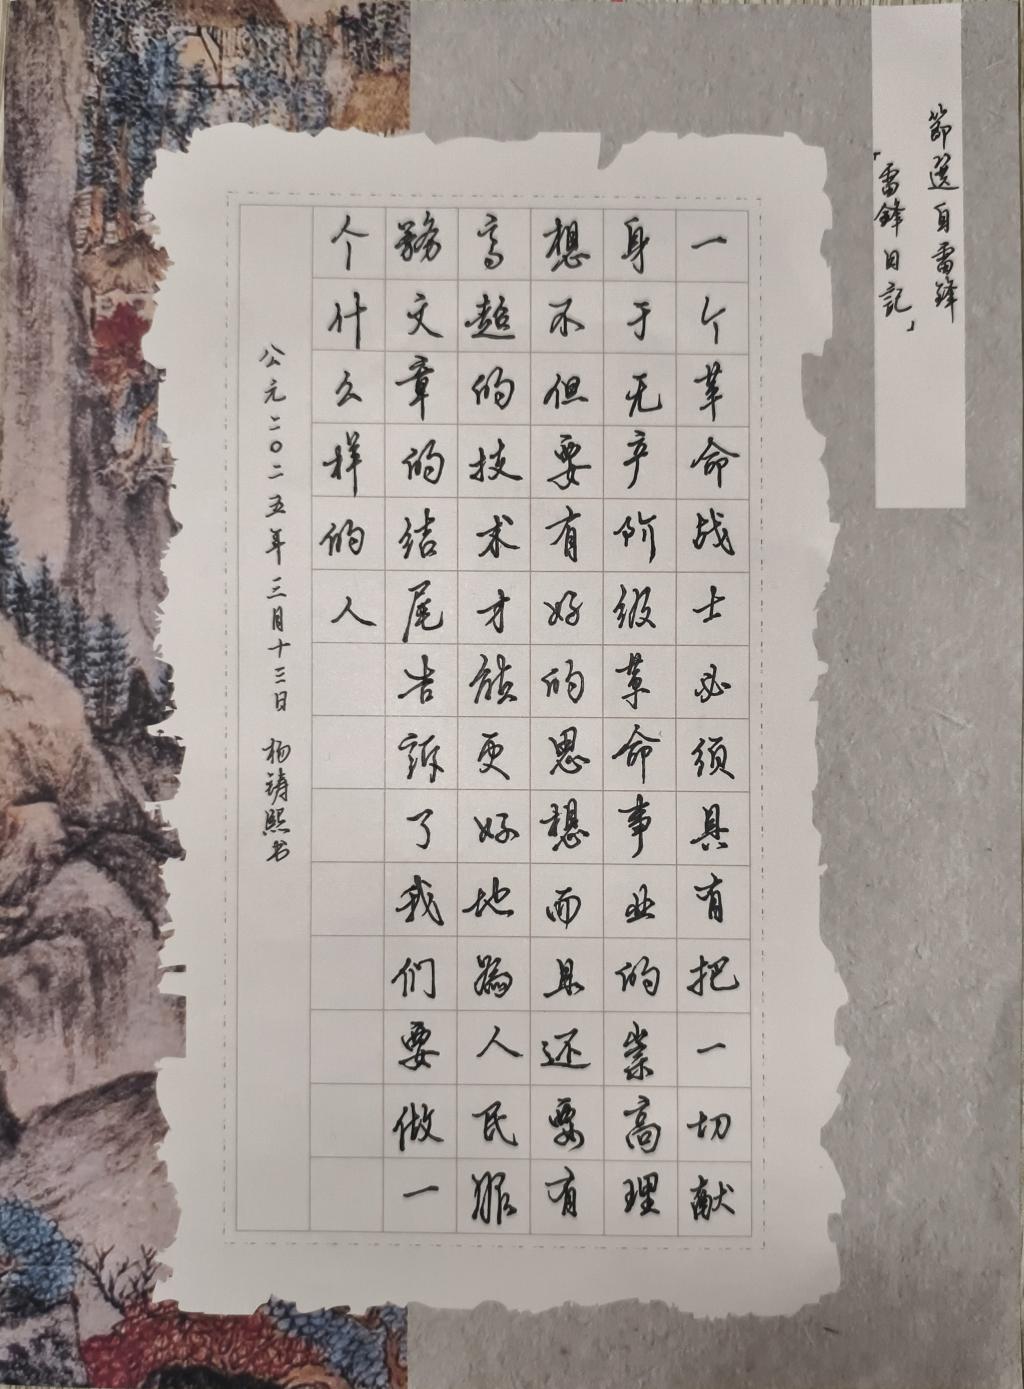 節選自雷鋒
「雷鋒日記」
一个革命战士必须具有把一切献
身于无产阶级革命事业的崇高理
想不但要有好的思想而且还要有
高超的技术才能更好地为人民服
務文章的结尾告訴了我们要做一
个什么样的人
公元二〇二五年三月十三日 杨涛熙书